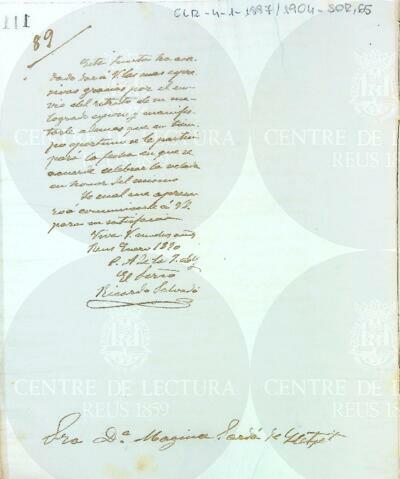 111
CLR-4-1-1887/1904-SOR,65
89
Esta Junta ha acor
dado dar á V. las mas expre
sivas gracias por el en
vio del retrato de su ma
logrado esposo y manifes
tarle ademas que en tiem
po oportuno se le partici
pará la fecha en que se
acuerde celebrar la velada
en honor del mismo
Lo cual me apresu
ro á comunicarle á V.
para su satisfacion
Viva V. muchos años
Reus Enero 1890
P. A. de la J. de G.
El Serio
Ricardo Salvadó
CENTRE DE LECTURA
REUS 1859
CENTRE DE LECTURA
REUS 1859
Sra Dª Magina Sardá de